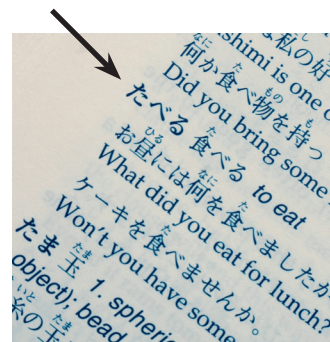 は私の好
shimi is one o
なに た もの も
何か食べ物を持っ
Did you bring some
た
たべる 食べる to eat
ひる なに た
お昼には何を食べましたか
What did you eat for lunch?
た
ケーキを食べませんか。
Won't you have some
たま
たま 玉 1. spheri
object); bead
いと たま
糸の玉